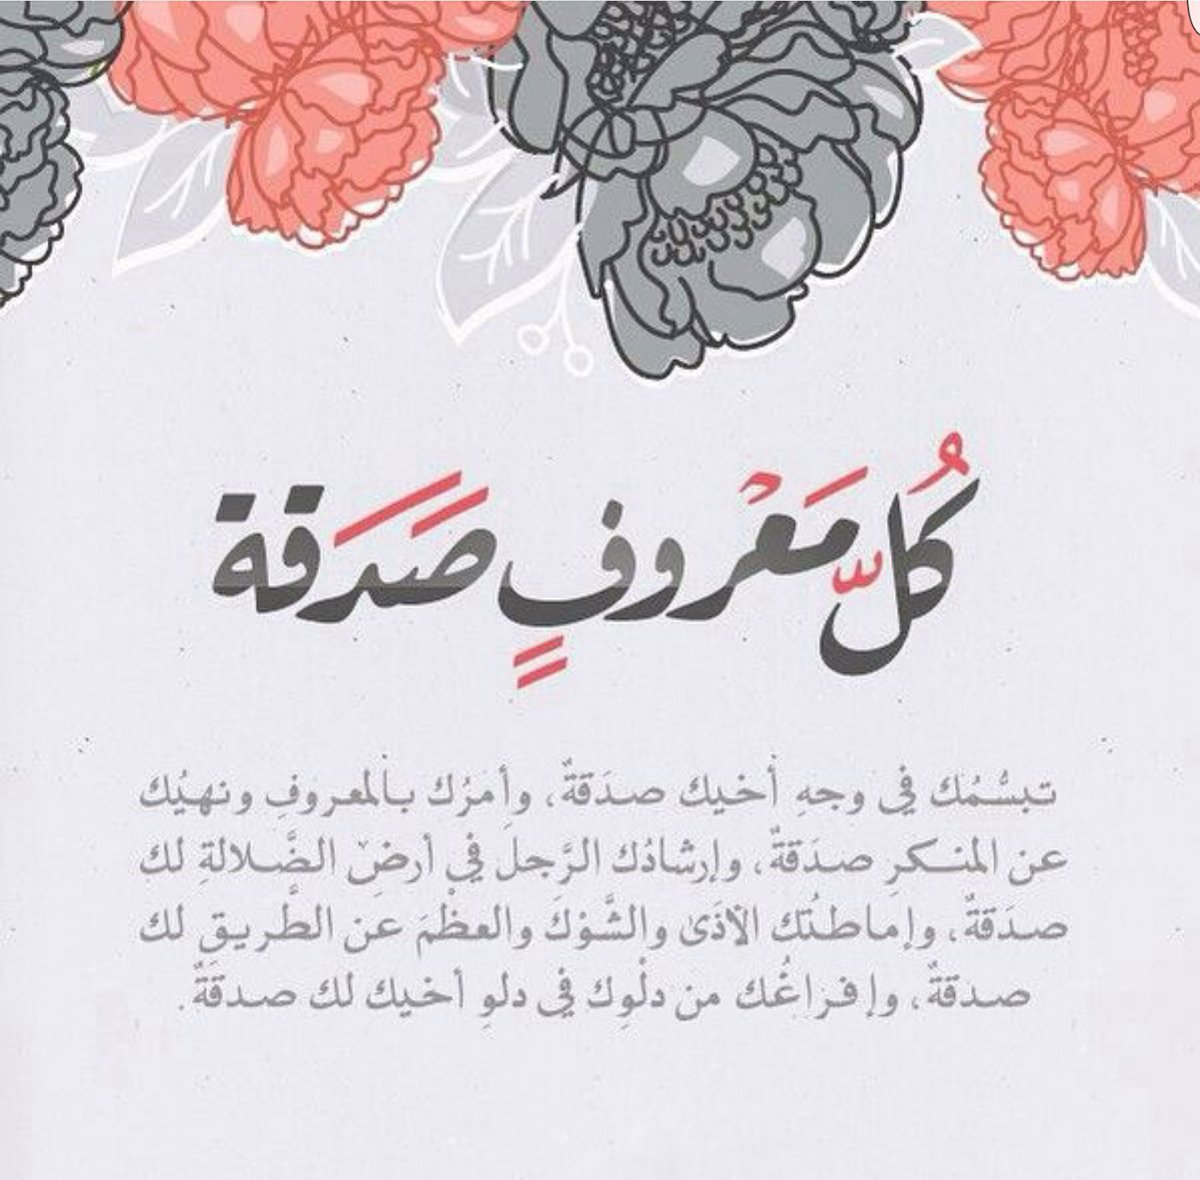 كُلُّ مَعْروفٍ صَدَقة
تبسُّمُك في وجهِ أخيك صدَقةٌ، وأمرُك بالمعروفِ ونهيُك
عن المنكرِ صدَقةٌ، وإرشادُك الرَّجلَ في أرضِ الضَّلالةِ لك
صدَقةٌ، وإماطتُك الأذَىٰ والشَّوْكَ والعظْمَ عن الطَّريقِ لك
صدقةٌ، وإفراغُك من دلْوِك في دلوِ أخيك لك صدقَةٌ.